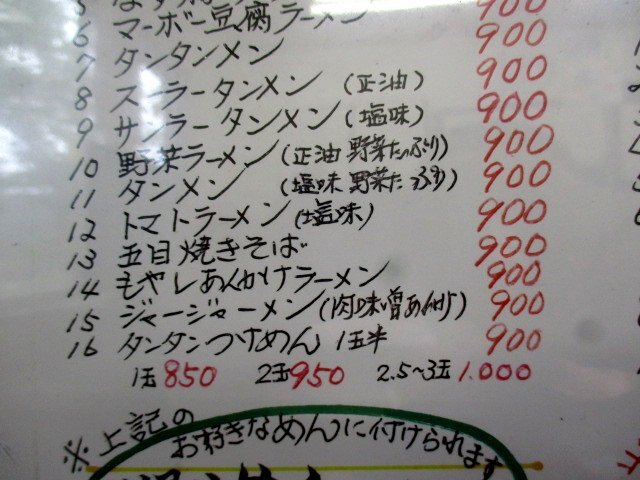 5 900
6 マーボー豆腐ラーメン 900
7 タンタンメン 900
8 スーラータンメン (正油) 900
9 サンラータンメン (塩味) 900
10 野菜ラーメン (正油 野菜たっぷり) 900
11 タンメン (塩味 野菜たっぷり) 900
12 トマトラーメン (塩味) 900
13 五目焼きそば 900
14 もやしあんかけラーメン 900
15 ジャージャーメン (肉味噌あんかけ) 900
16 タンタンつけめん 1玉半 900
1玉 850 2玉 950 2.5~3玉 1.000
※上記の お好きなめんに付けられます